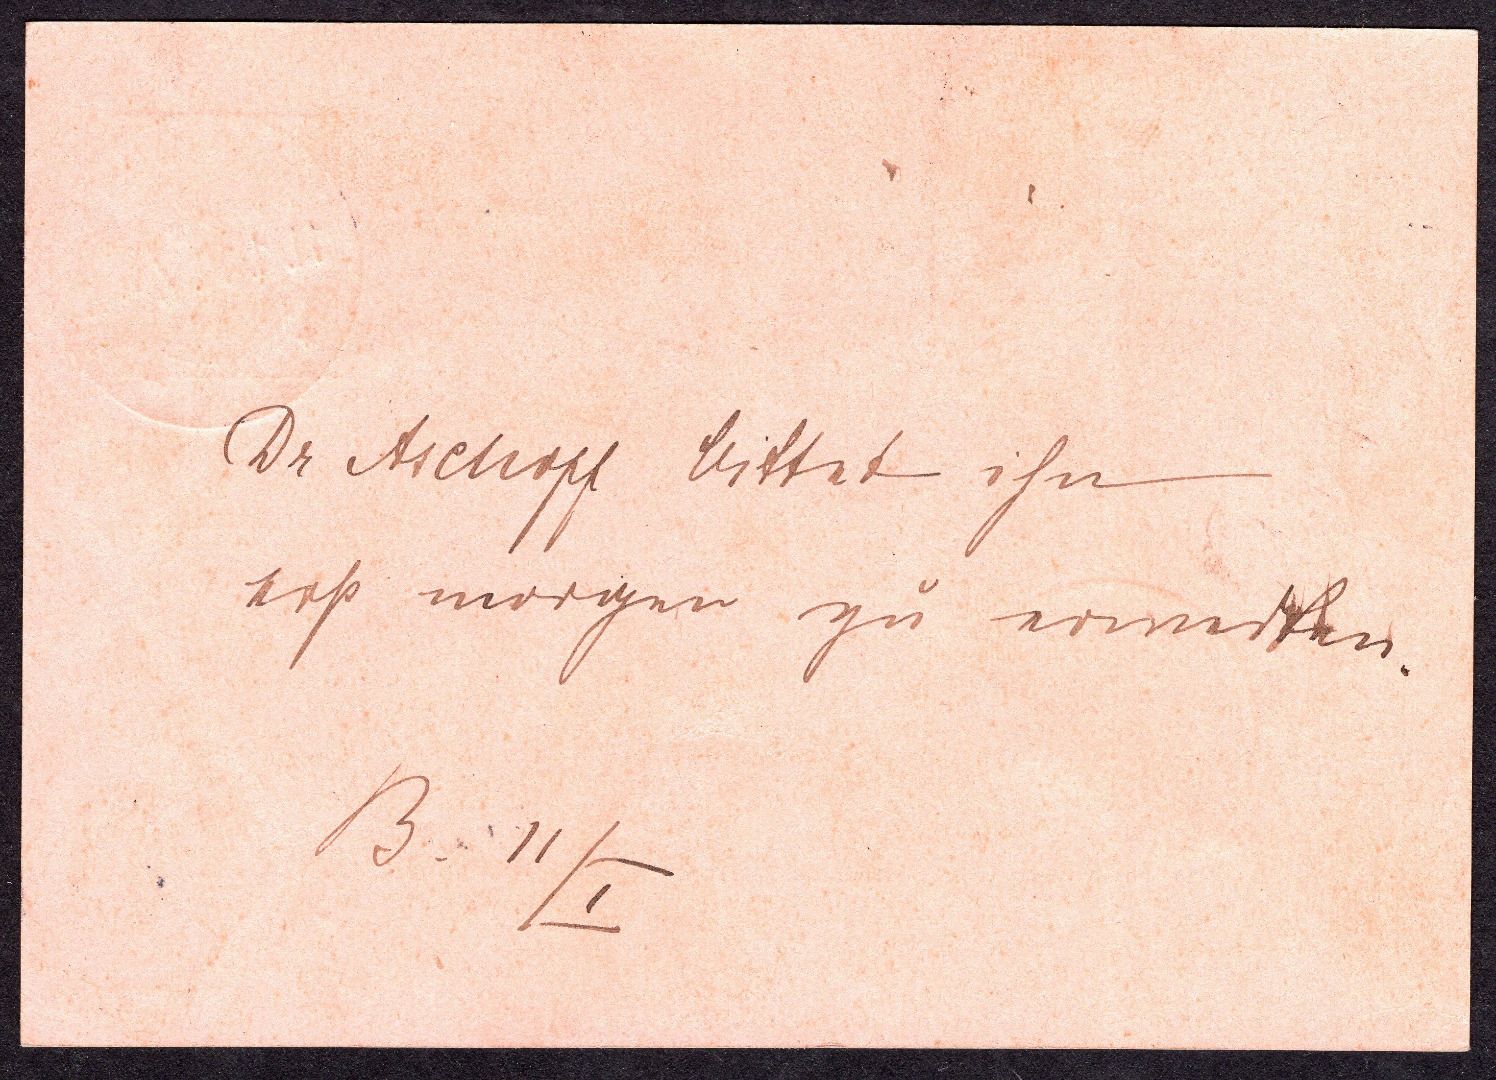 Dr Aschoff bittet ihn
erst morgen zu erwarten.
B. 11/I